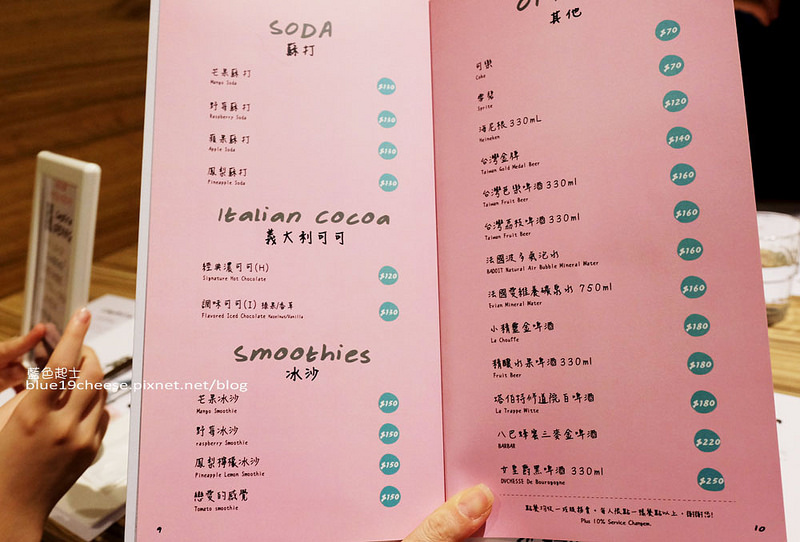 SODA
蘇打
芒果蘇打
Mango Soda
野莓蘇打 $160
Raspberry Soda
蘋果蘇打
Apple Soda
鳳梨蘇打
Pineapple Soda
Italian cocoa
義大利可可
經典濃可可(H) $120
Signature Hot Chocolate
調味可可(I) 榛果/香草 $130
Flavored Iced Chocolate Hazelnut/Vanilla
Smoothies
冰沙
芒果冰沙 $150
Mango Smoothie
野莓冰沙 $150
raspberry Smoothie
鳳梨檸檬冰沙 $150
Pineapple Lemon Smoothie
戀愛的感覺 $150
Tomato smoothie
9
其他
可樂 $70
Coke
雪碧 $70
Sprite
海尼根 330mL $120
Heineken
台灣金牌 $140
Taiwan Gold Medal Beer
台灣芭樂啤酒 330ml $160
Taiwan Fruit Beer
台灣荔枝啤酒 330ml $160
Taiwan Fruit Beer
法國波多氣泡水 $160
BADOIT Natural Air Bubble Mineral Water
法國愛維養礦泉水 750ml $160
Evian Mineral Water
小精靈金啤酒 $180
La Chouffe
精釀水果啤酒 330ml $180
Fruit Beer
塔伯特修道院白啤酒 $180
La Trappe Witte
八巴蜂蜜三麥金啤酒 $220
BARBAR
女皇爵黑啤酒 330ml $250
DUCHESSE De Bourgogne
Plus 10% Service
10
藍色起士
blue19cheese.pixnet.net/blog